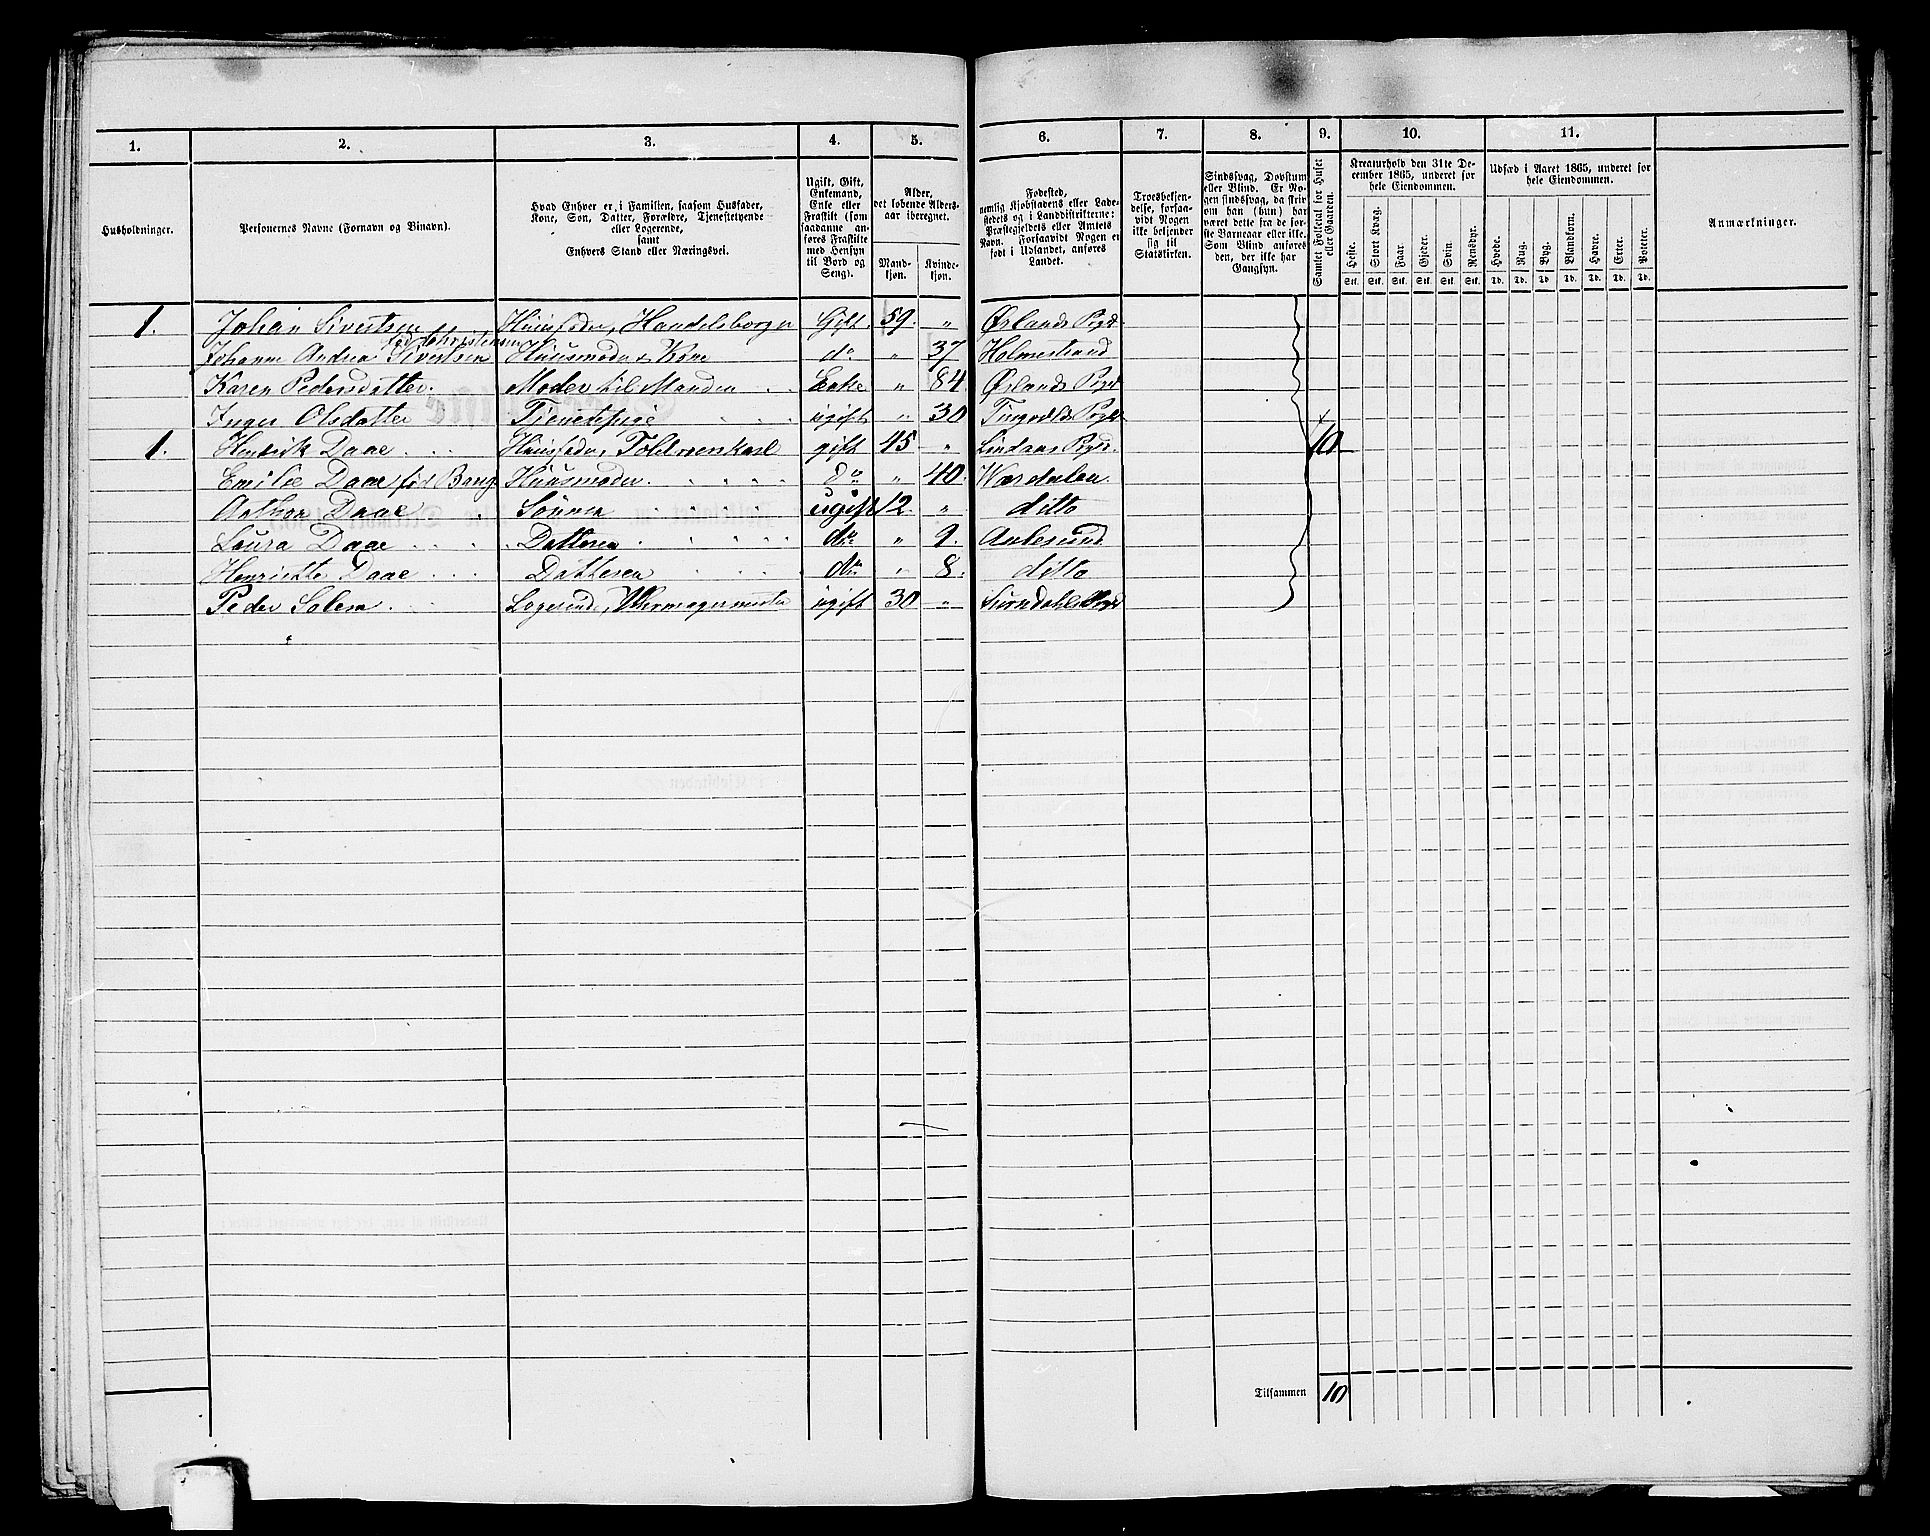 1. 2. 3. 4. 5. 6. 7. 8. 9. 10. 11.
Husholdninger.
Personernes Navne (Fornavn og Binavn).
Hvad Enhver er, i Familien, saasom Husfader, Kone, Søn, Datter, Forældre, Tjenestetyende eller Logerende, samt Enhvers Stand eller Næringsvei.
Ugift, Gift, Enkemand, Enke eller Fraskilt (som saadanne anføres Fraskilte med Hensyn til Bord og Seng).
Alder, det løbende Aldersaar iberegnet.
Mandkjøn. Kvindekjøn.
Fødested, nemlig Kjøbstadens eller Ladestedets og i Landdistrikterne: Præstegjeldets eller Amtets Navn. Forsaavidt Nogen er født i Udlandet, anføres Landet.
Troesbekjendelse, forsaavidt Nogen ikke bekjender sig til Statskirken.
Sindssvag, Døvstum eller Blind. Er Nogen sindssvag, da skriv om han (hun) har været dette fra de første Barneaar eller ikke. Som Blind anføres den, der ikke har Gangsyn.
Samlet Folketal for Huset eller Gaarden.
Kreaturhold den 31te December 1865, underet for hele Eiendommen.
Heste. Stort Kvæg. Faar. Gjeder. Svin. Rensdyr.
Stk. Stk. Stk. Stk. Stk. Stk.
Udsæd i Aaret 1865, underet for hele Eiendommen.
Hvede. Rug. Byg. Blandkorn. Havre. Erter. Poteter.
Td. Td. Td. Td. Td. Td. Td.
Anmærkninger.
1. Johan Sivertsen Huusfader, Handelsborger Gift 59. " Ørlands Pgd.
født Christensen
Johanne Andrea Sivertsen Huusmoder, Kone do " 37 Holmestrand
Karen Pedersdatter. Moder til Manden Enke " 84. Ørlands Pgd
Inger Olsdatter Tjenestepige ugift " 30 Tingvolds Pgd
1. Hendrik Daae Huusfader, Toldroerskarl gift 45 " Lindaas Pgd. 10
Emilie Daae fød Bang Huusmoder. do " 40. Værdalen
Anthon Daae Sønnen ugift 12. " ditto
Laura Daae Datteren do " 9. Aalesund
Henriette Daae Datteren do " 8. ditto
Peder Solem Logerend, Uhrmagermester ugift 30 " Surndahls Pgd
Tilsammen 10